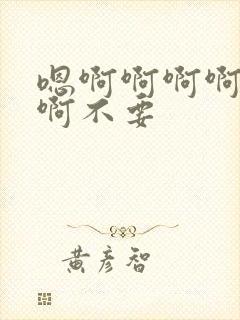 嗯啊啊啊啊
啊不要
黄彦智